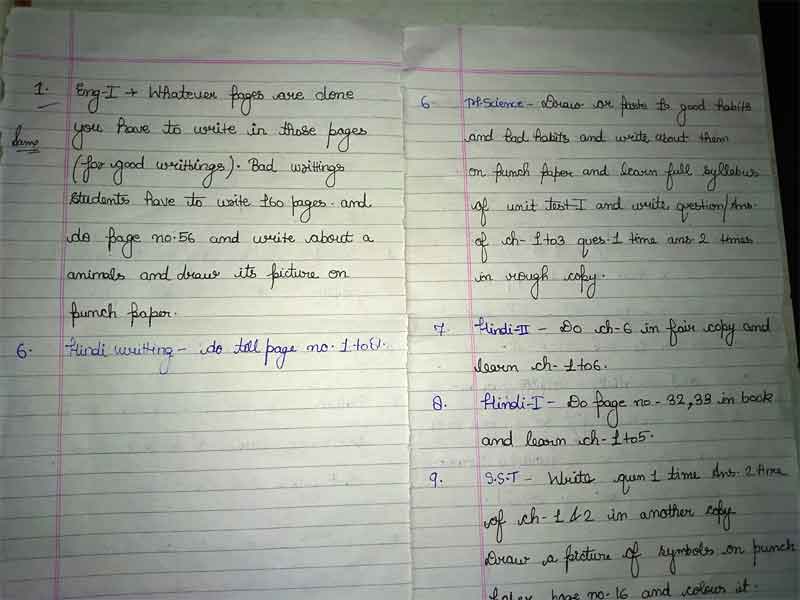 1. Eng-I → Whatever pages are done
you have to write in those pages
(for good writtings). Bad writtings
students have to write 160 pages. and
do page no. 56 and write about a
animals and draw its picture on
punch paper.
6. Hindi writting - do till page no. 1 to
6 M.Science - Draw or paste good habits
and bad habits and write about them
on punch paper and learn full syllabus
of unit test-I and write question/Ans.
of ch-1 to 3 ques. 1 time ans. 2 times
in rough copy.
7. Hindi-II - Do ch-6 in fair copy and
learn ch-1 to 6.
8. Hindi-I - Do page no- 32, 33 in book
and learn ch-1 to 5.
9. S.S.T - Write 1 time Ans. 2 time
of ch-1 & 2 in another copy
Draw a picture of symbols on punch
page no-16 and colour it.